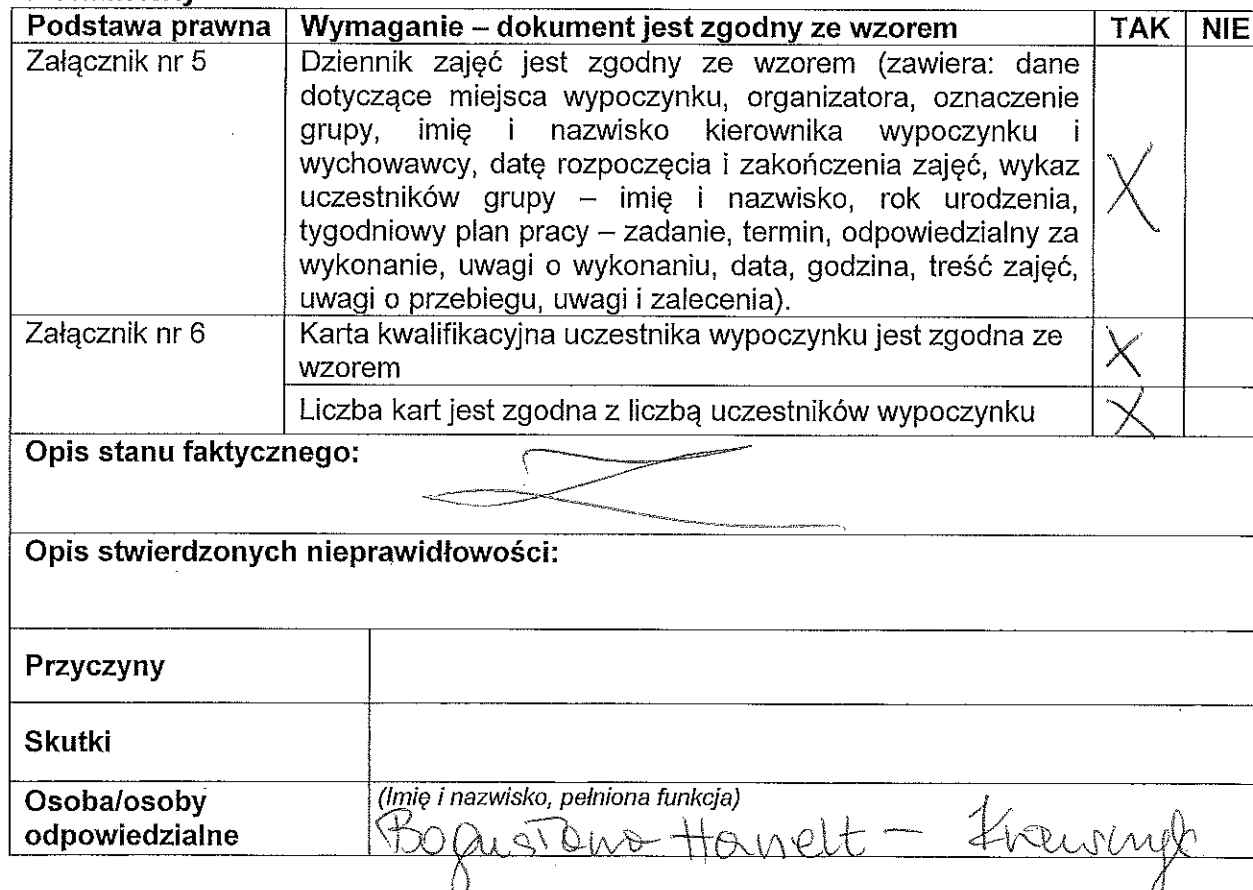 Podstawa prawna Wymaganie – dokument jest zgodny ze wzorem TAK NIE
Załącznik nr 5 Dziennik zajęć jest zgodny ze wzorem (zawiera: dane
dotyczące miejsca wypoczynku, organizatora, oznaczenie
grupy, imię i nazwisko kierownika wypoczynku i
wychowawcy, datę rozpoczęcia i zakończenia zajęć, wykaz
uczestników grupy – imię i nazwisko, rok urodzenia,
tygodniowy plan pracy – zadanie, termin, odpowiedzialny za
wykonanie, uwagi o wykonaniu, data, godzina, treść zajęć,
uwagi o przebiegu, uwagi i zalecenia).
Załącznik nr 6 Karta kwalifikacyjna uczestnika wypoczynku jest zgodna ze
wzorem
Liczba kart jest zgodna z liczbą uczestników wypoczynku
Opis stanu faktycznego:
Opis stwierdzonych nieprawidłowości:
Przyczyny
Skutki
Osoba/osoby
odpowiedzialne
(Imię i nazwisko, pełniona funkcja)
Bogusława Hanelt – Krawczyk